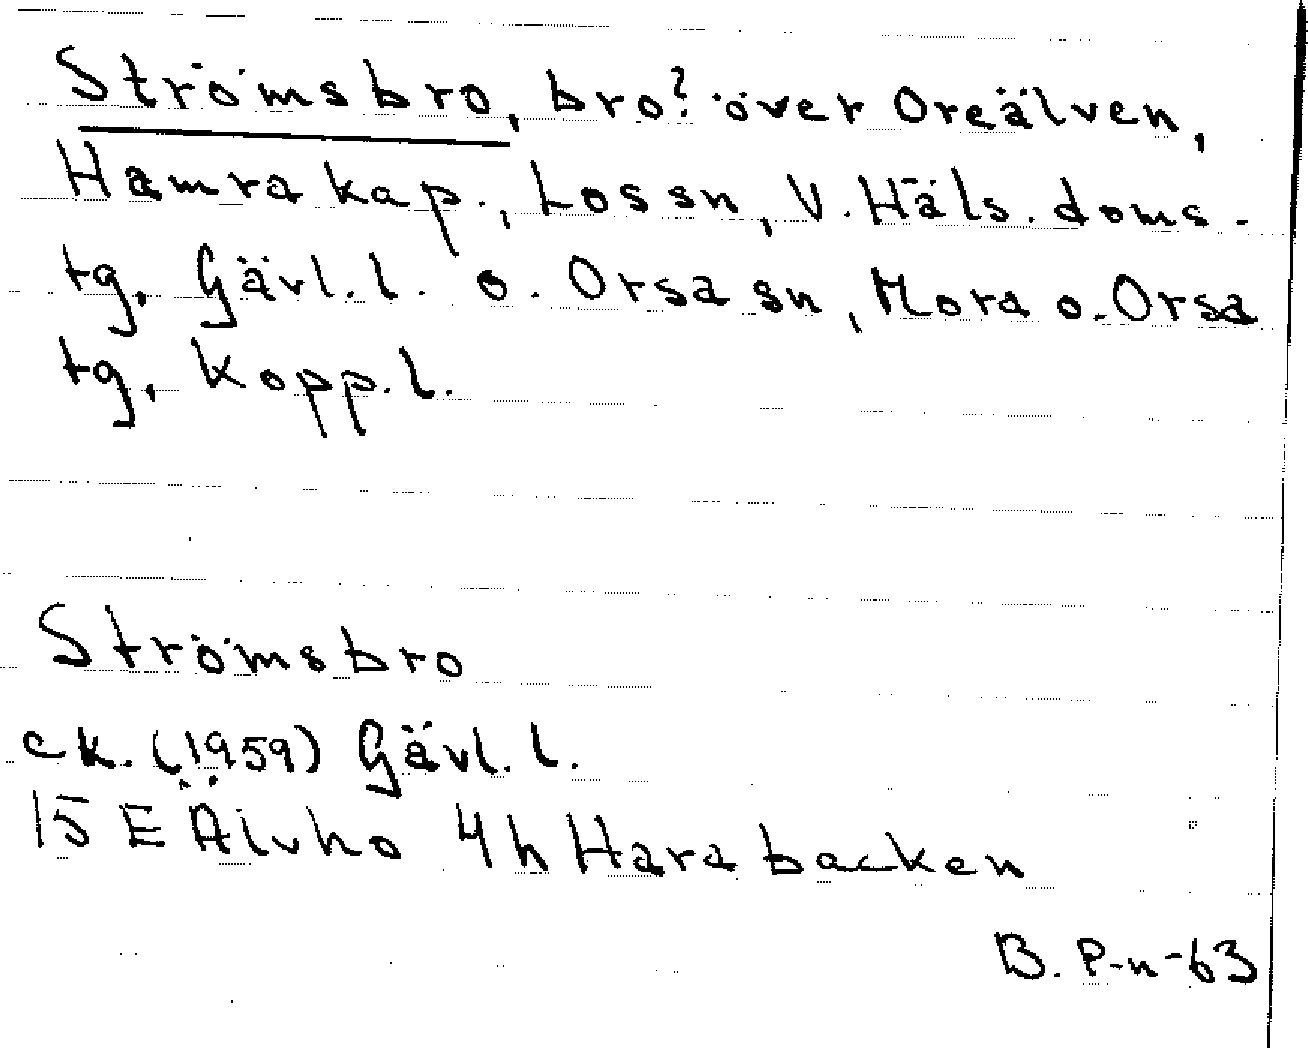 Strömsbro, bro? över Oreälven,
Hamra kap., Los sn, V. Häls. doms-
tg, Gävl. l. o. Orsa sn, Mora o. Orsa
tg, Kopp. l.
Strömsbro
ek. (1959) Gävl. l.
15 E Älvho 4h Harabacken
B. P-n-63